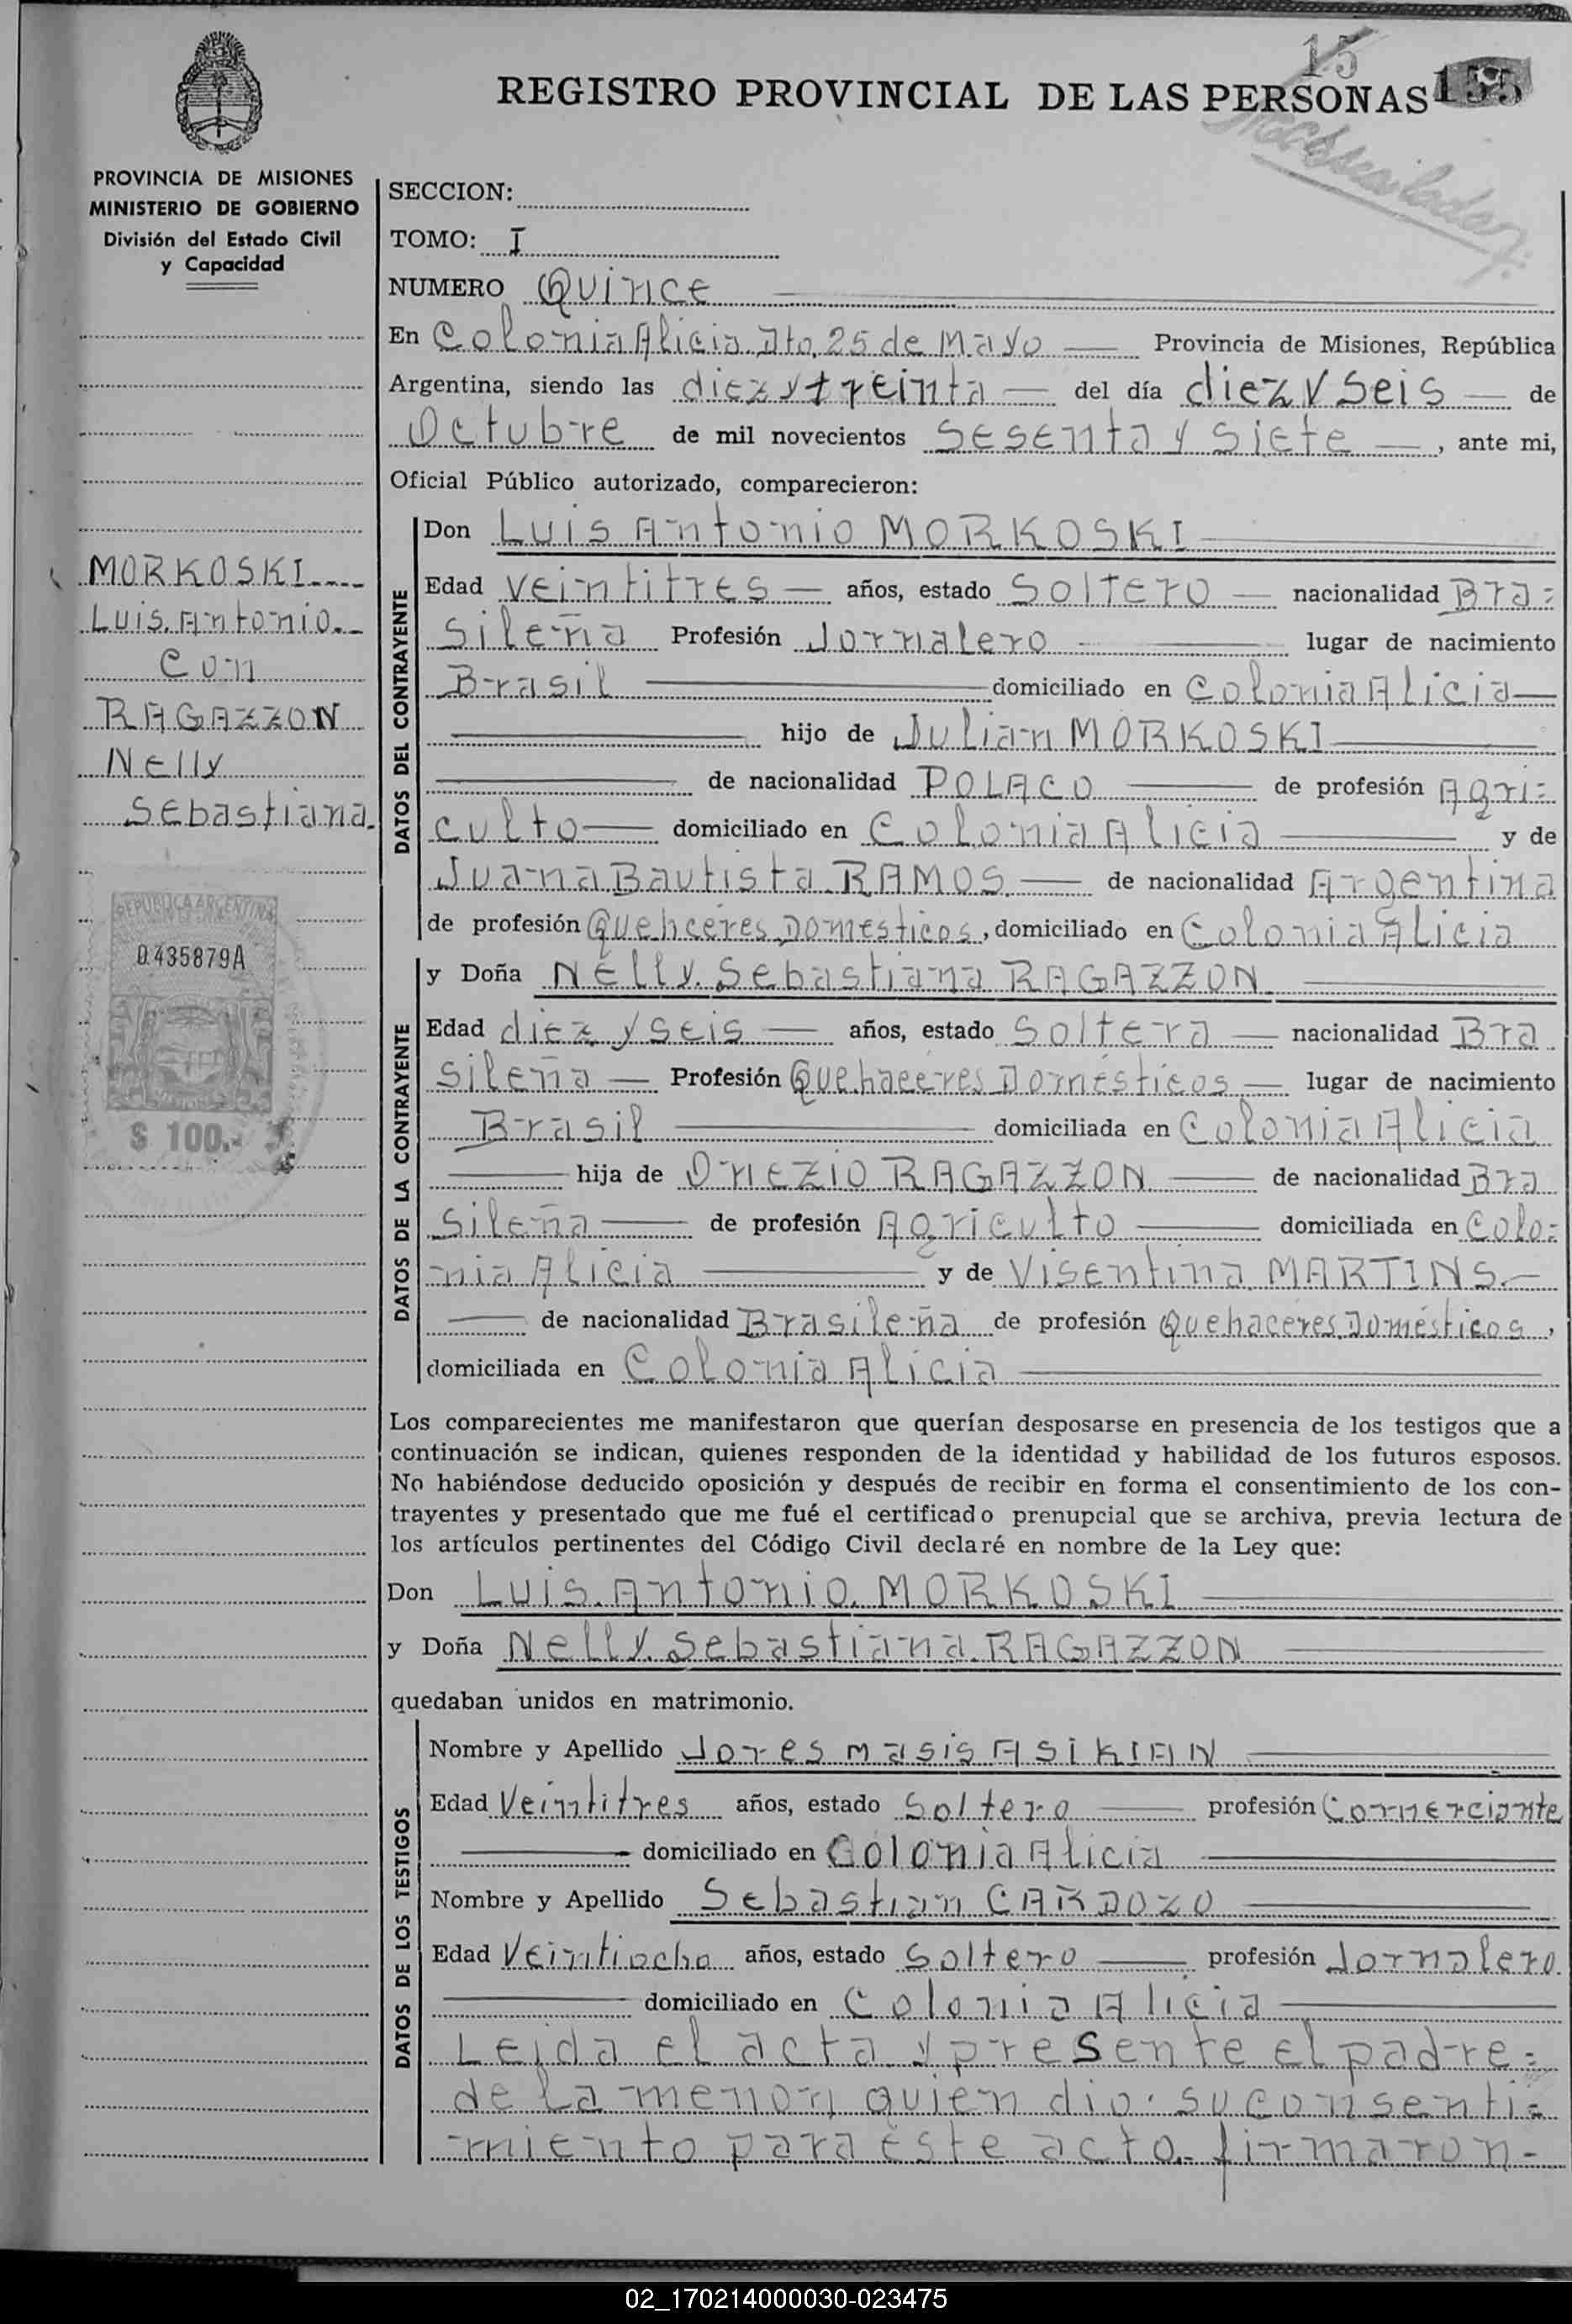 15
REGISTRO PROVINCIAL DE LAS PERSONAS 155
PROVINCIA DE MISIONES
MINISTERIO DE GOBIERNO
División del Estado Civil
y Capacidad
SECCION:
TOMO: I
NUMERO Quince
En Colonia Alicia Dto. 25 de Mayo Provincia de Misiones, República
Argentina, siendo las diez y treinta del día diez y seis de
Octubre de mil novecientos sesenta y siete, ante mi,
Oficial Público autorizado, comparecieron:
MORKOSKI
Luis Antonio
Con
RAGAZZON
Nelly
Sebastiana
REPUBLICA ARGENTINA
0435879A
$ 100.-
DATOS DEL CONTRAYENTE
Don Luis Antonio MORKOSKI
Edad veintitres años, estado Soltero nacionalidad Bra=
sileña Profesión Jornalero lugar de nacimiento
Brasil domiciliado en Colonia Alicia
hijo de Julian MORKOSKI
de nacionalidad POLACO de profesión Agri=
culto domiciliado en Colonia Alicia y de
Juana Bautista RAMOS de nacionalidad Argentina
de profesión Quehceres Domesticos, domiciliado en Colonia Alicia
DATOS DE LA CONTRAYENTE
y Doña Nélly Sebastiana RAGAZZON
Edad diez y seis años, estado Soltera nacionalidad Bra
sileña Profesión Quehaceres Domésticos lugar de nacimiento
Brasil domiciliada en Colonia Alicia
hija de Onezio RAGAZZON de nacionalidad Bra
sileña de profesión Agriculto domiciliada en Colo=
nia Alicia y de Visentina MARTINS
de nacionalidad Brasileña de profesión Quehaceres Domésticos,
domiciliada en Colonia Alicia
Los comparecientes me manifestaron que querían desposarse en presencia de los testigos que a
continuación se indican, quienes responden de la identidad y habilidad de los futuros esposos.
No habiéndose deducido oposición y después de recibir en forma el consentimiento de los con-
trayentes y presentado que me fué el certificado prenupcial que se archiva, previa lectura de
los artículos pertinentes del Código Civil declaré en nombre de la Ley que:
Don Luis Antonio MORKOSKI
y Doña Nelly Sebastiana RAGAZZON
quedaban unidos en matrimonio.
DATOS DE LOS TESTIGOS
Nombre y Apellido Jores masis ASIKIAN
Edad Veintitres años, estado Soltero profesión Comerciante
domiciliado en Colonia Alicia
Nombre y Apellido Sebastian CARDOZO
Edad Veintiocho años, estado Soltero profesión Jornalero
domiciliado en Colonia Alicia
Leida el acta y presente el padre=
de la menor, quien dio su consenti=
miento para éste acto. firmaron-
02_170214000030-023475